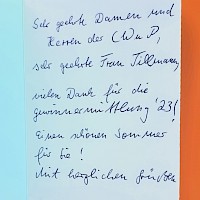 Sehr geehrte Damen und
Herren der CWuP,
sehr geehrte Frau Tillmann,
vielen Dank für die
gewinnermittlung '23!
Einen schönen Sommer
für Sie!
Mit herzlichen Grüßen